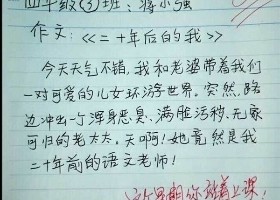 四年级(3)班：蒋小强
作文：《二十年后的我》
今天天气不错，我和老婆带着我们
一对可爱的儿女环游世界。突然，路
边冲出一个浑身恶臭、满脸污秽、无家
可归的老太太。天啊！她竟然是我
二十年前的语文老师！